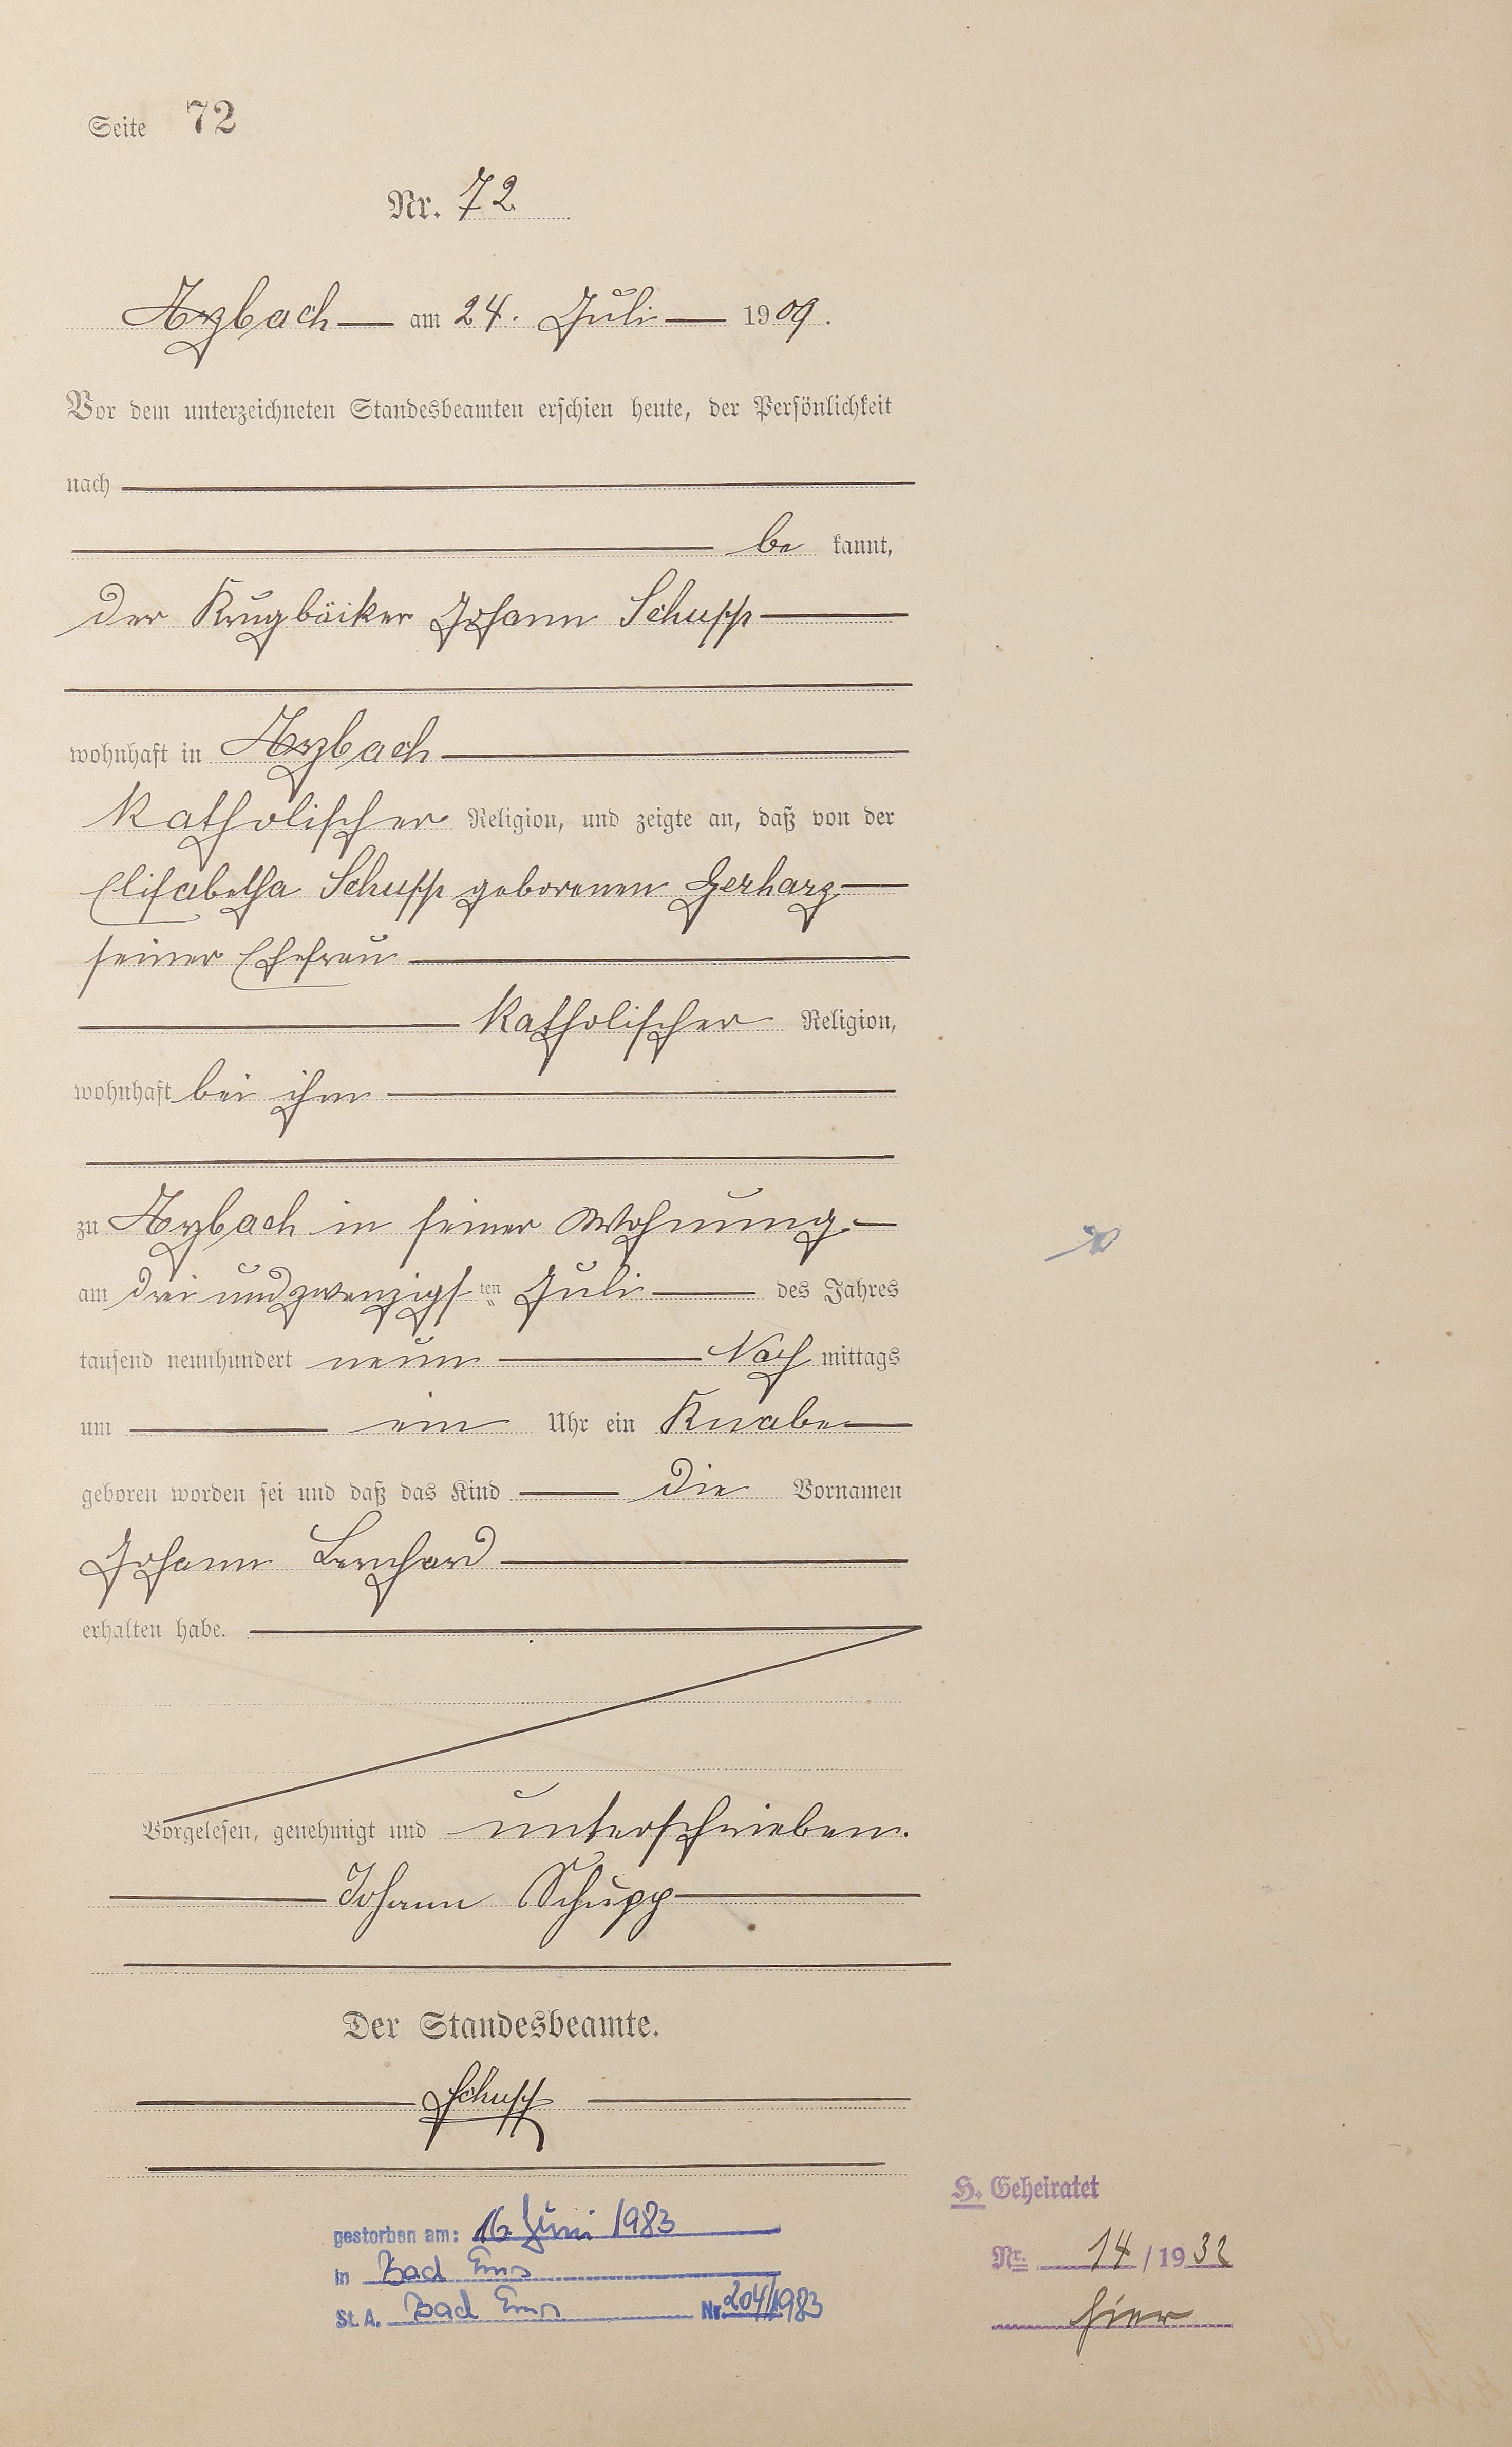 Seite 72
Nr. 72
Arzbach am 24. Juli 1909.
Vor dem unterzeichneten Standesbeamten erschien heute, der Persönlichkeit
nach
be kannt,
der Krugbäcker Johann Schupp
wohnhaft in Arzbach
katholischer Religion, und zeigte an, daß von der
Elisabetha Schupp geborenen Gerharz
seiner Ehefrau
katholischer Religion,
wohnhaft bei ihm
zu Arzbach in seiner Wohnung
am drei und zwanzigsten Juli des Jahres
tausend neunhundert neun Nach mittags
um ein Uhr ein Knabe
geboren worden sei und daß das Kind die Vornamen
Johann Bernhard
erhalten habe.
Vorgelesen, genehmigt und unterschrieben.
Johann Schupp
Der Standesbeamte.
Schupp
gestorben am: 16. Juni 1983
in Bad Ems
St. A. Bad Ems Nr. 204/1983
H. Geheiratet
Nr. 14/1932
hier